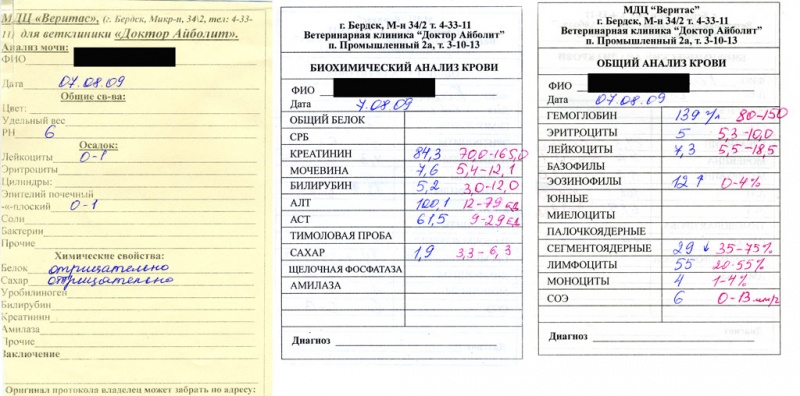 МДЦ «Веритас», (г. Бердск, Микр-н, 34\2, тел: 4-33-
11) для ветклиники «Доктор Айболит».
Анализ мочи:
ФИО
Дата 07.08.09
Общие св-ва:
Цвет:
Удельный вес
PH 6
Осадок:
Лейкоциты 0-1
Эритроциты
Цилиндры:
Эпителий почечный
-«-плоский 0-1
Соли
Бактерии
Прочие
Химические свойства:
Белок отрицательно
Сахар отрицательно
Уробилиноген
Билирубин
Креатинин
Амилаза
Прочие
Заключение
Оригинал протокола владелец может забрать по адресу:
г. Бердск, М-н 34/2 т. 4-33-11
Ветеринарная клиника “Доктор Айболит”
п. Промышленный 2а, т. 3-10-13
БИОХИМИЧЕСКИЙ АНАЛИЗ КРОВИ
ФИО
Дата 7.08.09
ОБЩИЙ БЕЛОК
СРБ
КРЕАТИНИН 84,3 70,0-165,0
МОЧЕВИНА 7,6 5,4-12,1
БИЛИРУБИН 5,2 3,0-12,0
АЛТ 100,1 12-79 ед
АСТ 61,5 9-29 ед
ТИМОЛОВАЯ ПРОБА
САХАР 1,9 3,3-6,3
ЩЕЛОЧНАЯ ФОСФАТАЗА
АМИЛАЗА
Диагноз
МДЦ “Веритас”
г. Бердск, М-н 34/2 т. 4-33-11
Ветеринарная клиника “Доктор Айболит”
п. Промышленный 2а, т. 3-10-13
ОБЩИЙ АНАЛИЗ КРОВИ
ФИО
Дата 07.08.09
ГЕМОГЛОБИН 139 г/л 80-150
ЭРИТРОЦИТЫ 5 5,3-10,0
ЛЕЙКОЦИТЫ 7,3 5,5-18,5
БАЗОФИЛЫ
ЭОЗИНОФИЛЫ 12↑ 0-4%
ЮННЫЕ
МИЕЛОЦИТЫ
ПАЛОЧКОЯДЕРНЫЕ
СЕГМЕНТОЯДЕРНЫЕ 29 ↓ 35-75%
ЛИМФОЦИТЫ 55 20-55%
МОНОЦИТЫ 4 1-4%
СОЭ 6 0-13 мм/г
Диагноз